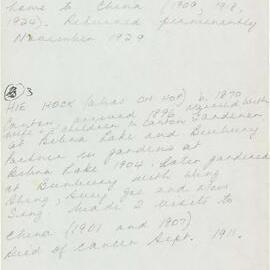 home to China (1909, 1918,
1924). Returned permanently
November 1929
3
HIE HOCK (alias OH HOP) b. 1870
Canton, arrived 1896 resided with
wife & children in Canton Gardener
at Bibra Lake and Bunbury
Partner in gardens at
Bibra Lake 1904. Later gardened
at Bunbury with Wing
Shing, Suey Gee and
made 2 visits to
China (1901 and 1907)
Died of cancer Sept. 1911.